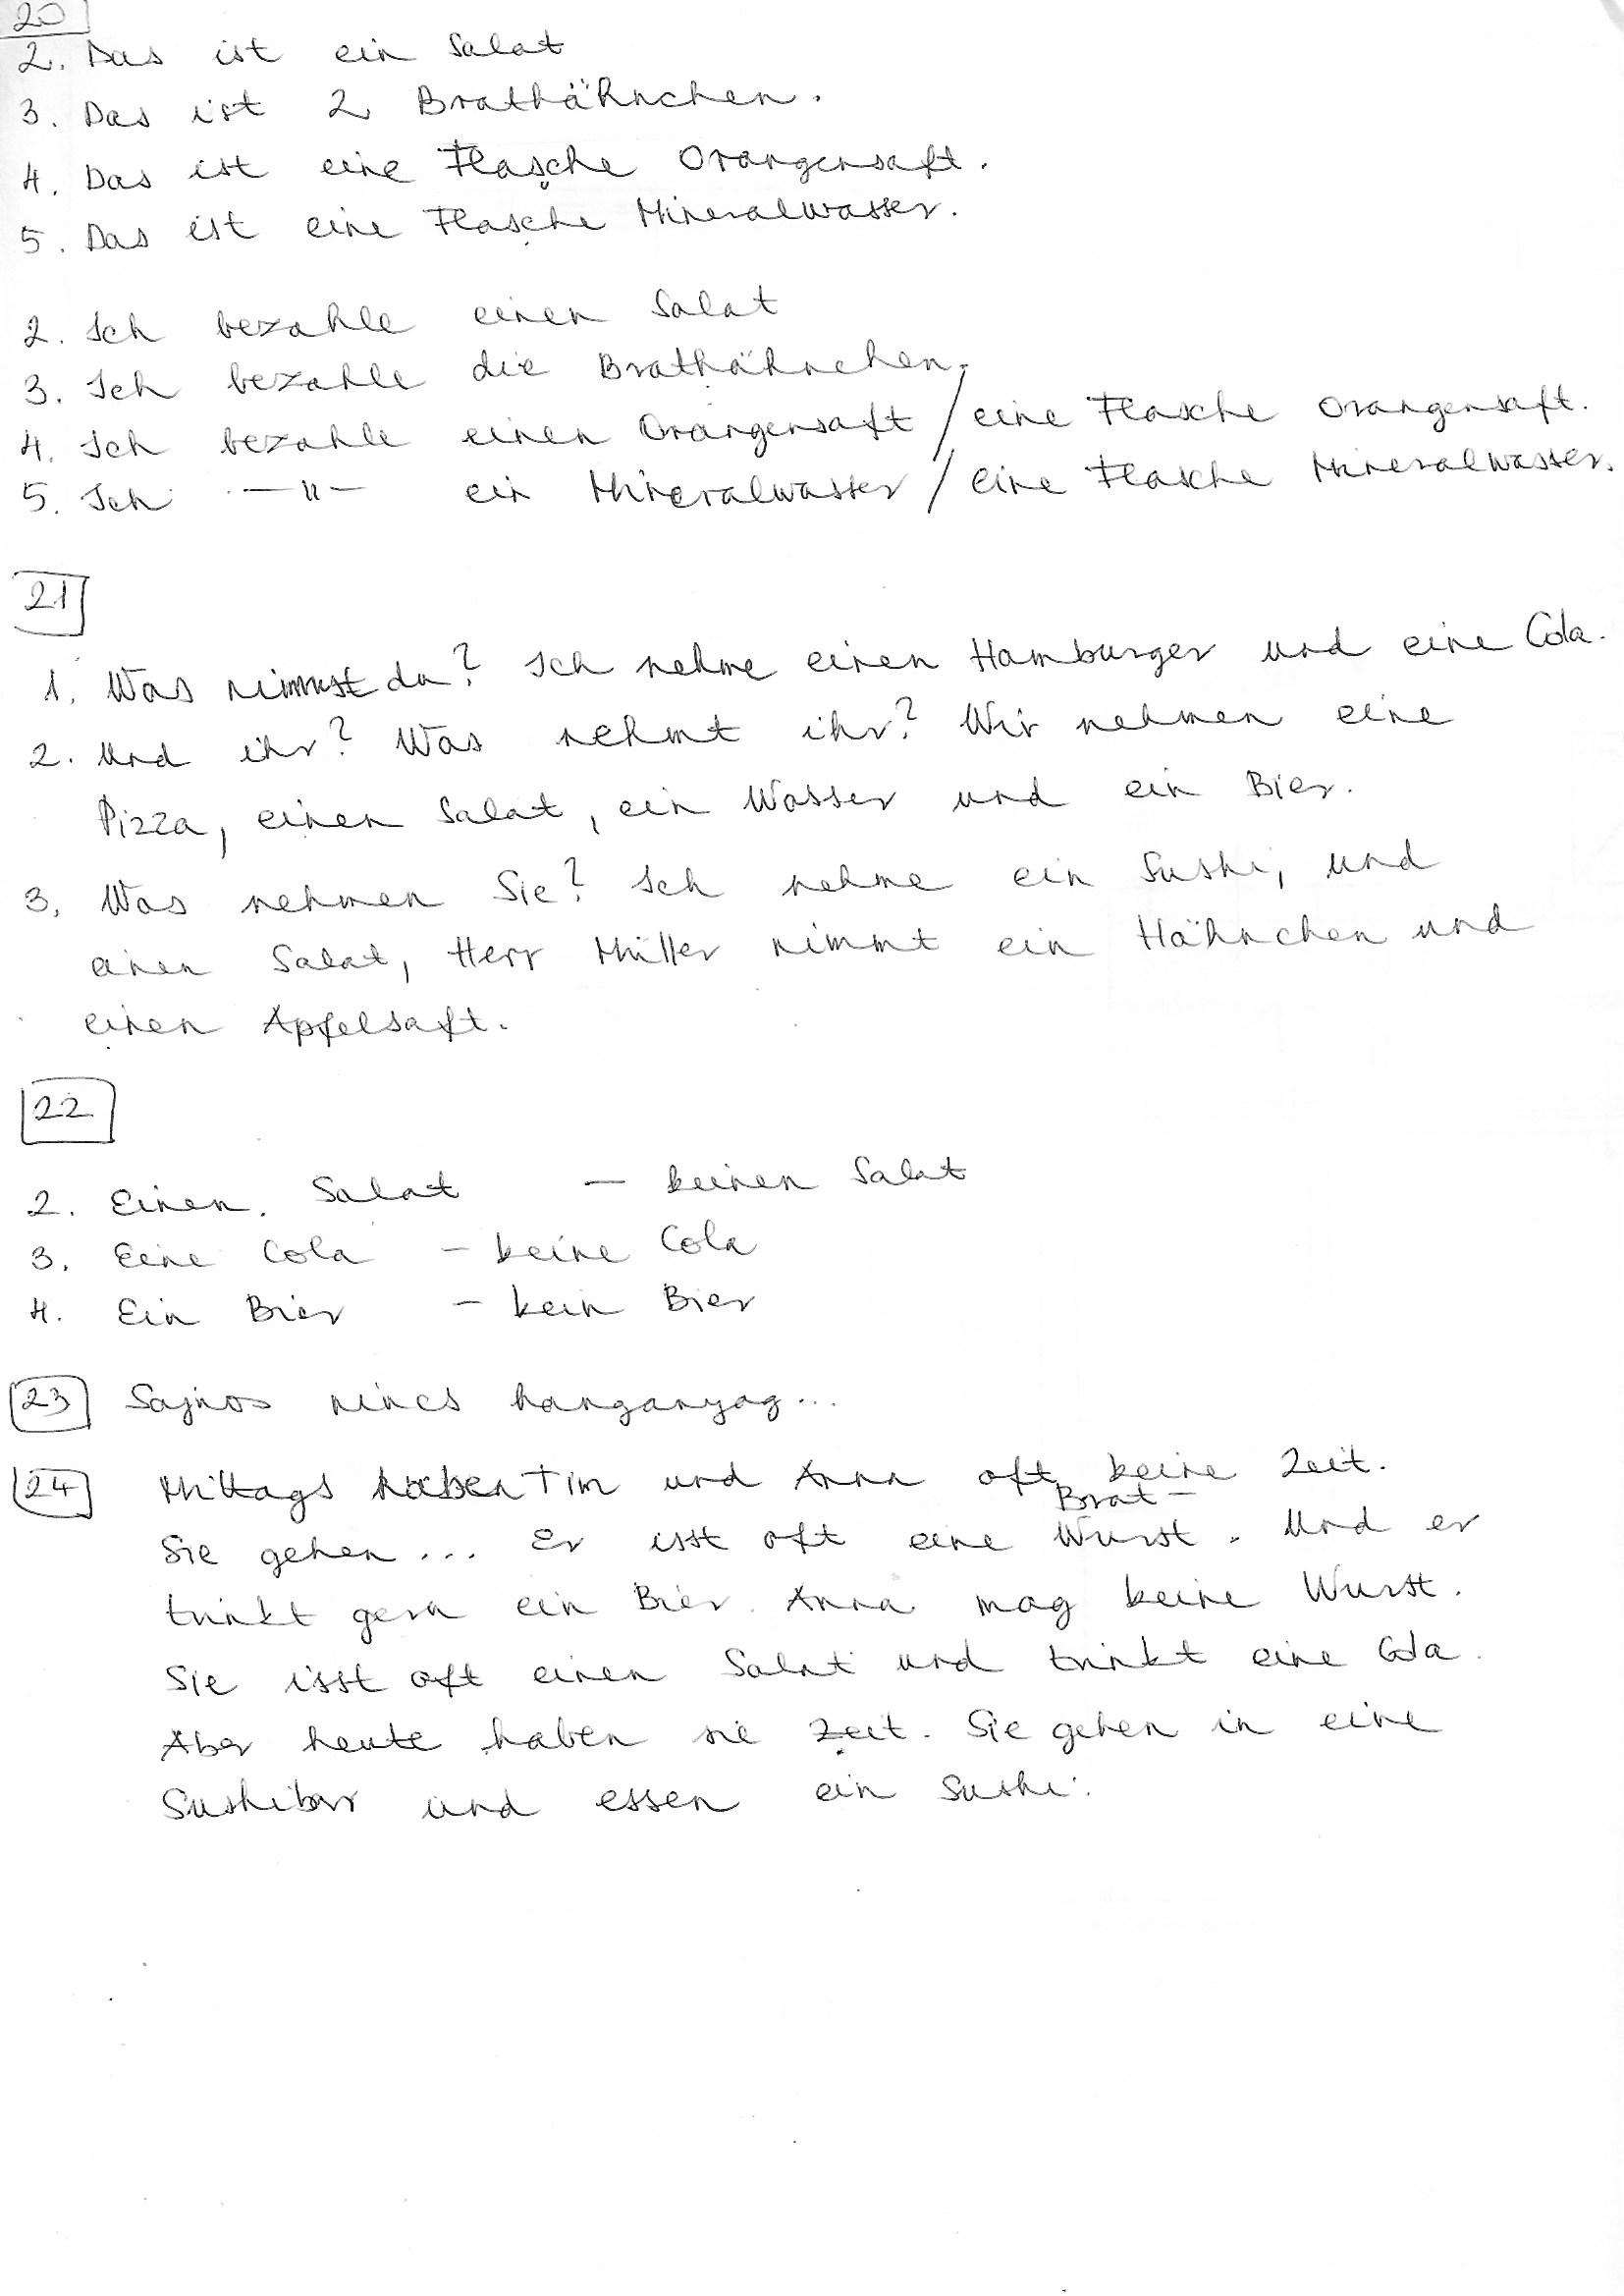 20
2. Das ist ein Salat
3. Das ist 2 Brathähnchen.
4. Das ist eine Flasche Orangensaft.
5. Das ist eine Flasche Mineralwasser.
2. Ich bezahle einen Salat
3. Ich bezahle die Brathähnchen.
4. Ich bezahle einen Orangensaft / eine Flasche Orangensaft.
5. Ich —"— ein Mineralwasser / eine Flasche Mineralwasser.
21
1. Was nimmst du? Ich nehme einen Hamburger und eine Cola.
2. Und ihr? Was nehmt ihr? Wir nehmen eine
Pizza, einen Salat, ein Wasser und ein Bier.
3. Was nehmen Sie? Ich nehme ein Sushi, und
einen Salat, Herr Müller nimmt ein Hähnchen und
einen Apfelsaft.
22
2. Einen Salat — keinen Salat
3. Eine Cola – keine Cola
4. Ein Bier – kein Bier
23 Sajnos nincs hanganyag...
24 Mittags haben Tim und Anna oft keine Zeit.
Sie gehen... Er isst oft eine Brat-Wurst. Und er
trinkt gern ein Bier. Anna mag keine Wurst.
Sie isst oft einen Salat und trinkt eine Cola.
Aber heute haben sie Zeit. Sie gehen in eine
Sushibar und essen ein Sushi.